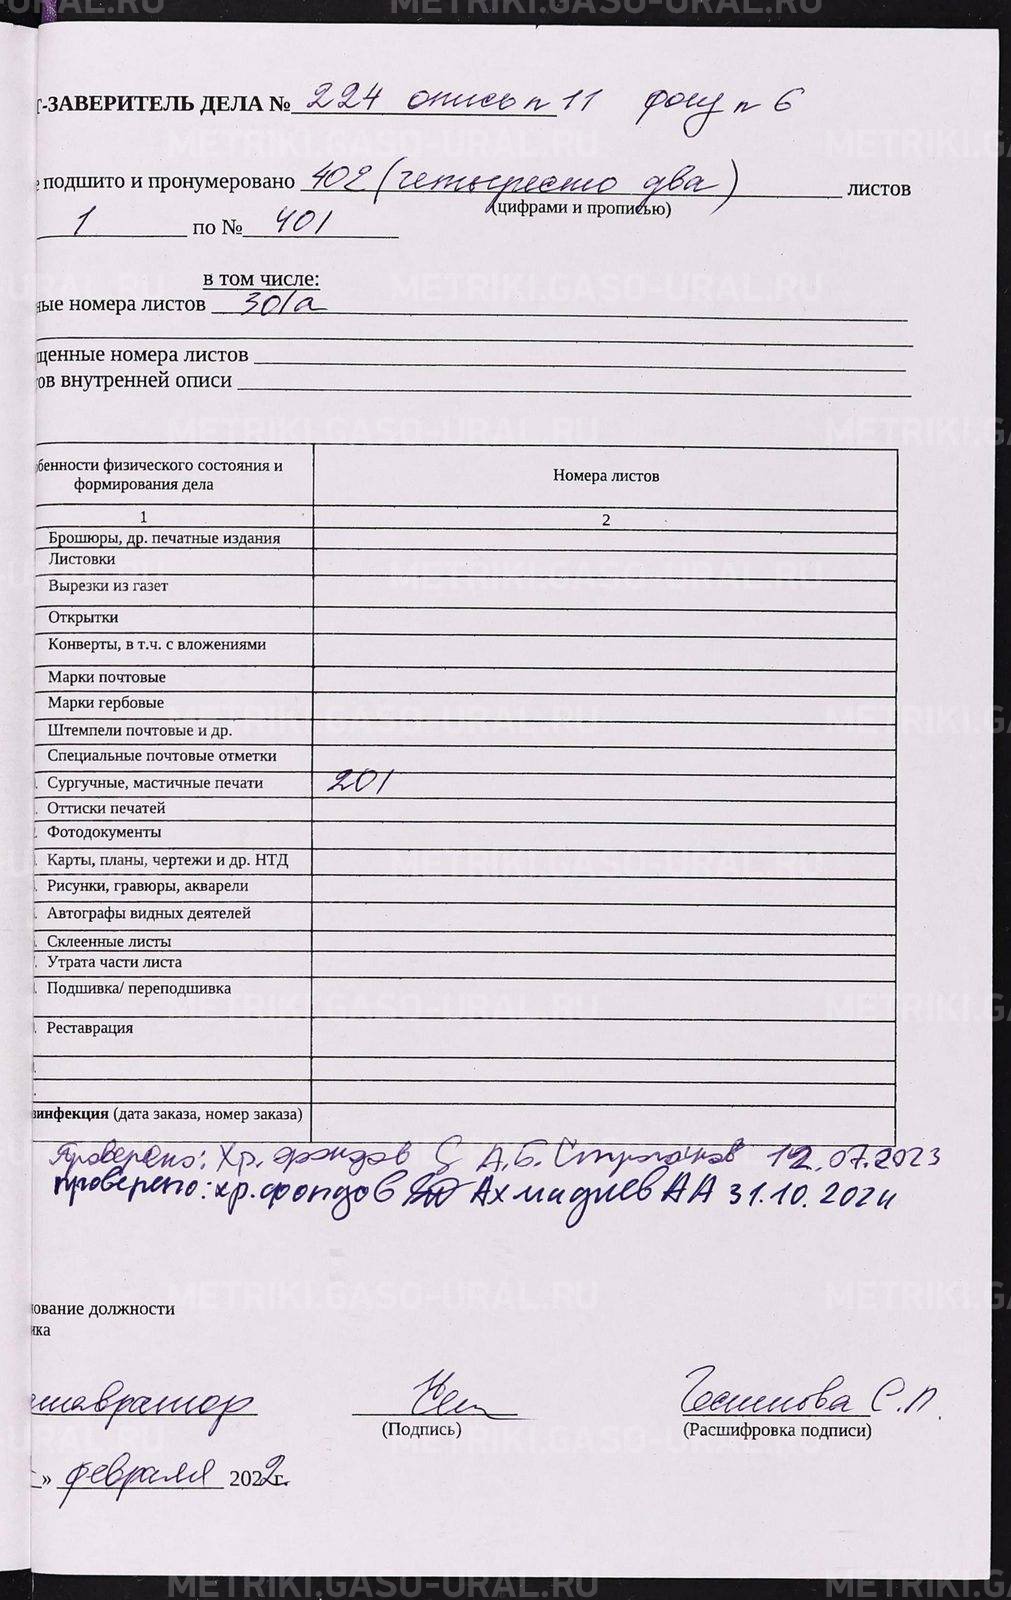 Т-ЗАВЕРИТЕЛЬ ДЕЛА № 224 опись n 11 фонд n 6
подшито и пронумеровано 402 (четыреста два) листов
(цифрами и прописью)
1 по № 401
в том числе:
ные номера листов 301а
щенные номера листов
ов внутренней описи
бенности физического состояния и формирования дела Номера листов
1 2
Брошюры, др. печатные издания
Листовки
Вырезки из газет
Открытки
Конверты, в т.ч. с вложениями
Марки почтовые
Марки гербовые
Штемпели почтовые и др.
Специальные почтовые отметки
Сургучные, мастичные печати 201
Оттиски печатей
Фотодокументы
Карты, планы, чертежи и др. НТД
Рисунки, гравюры, акварели
Автографы видных деятелей
Склеенные листы
Утрата части листа
Подшивка/ переподшивка
Реставрация
зинфекция (дата заказа, номер заказа)
Проверено: Хр. фондов А.Б. 12.07.2023
проверено: хр. фондов Ахмадиев А А 31.10.2024
ование должности
ика
ставратор С.П.
(Подпись) (Расшифровка подписи)
» февраля 2022г.
METRIKI.GASO-URAL.RU